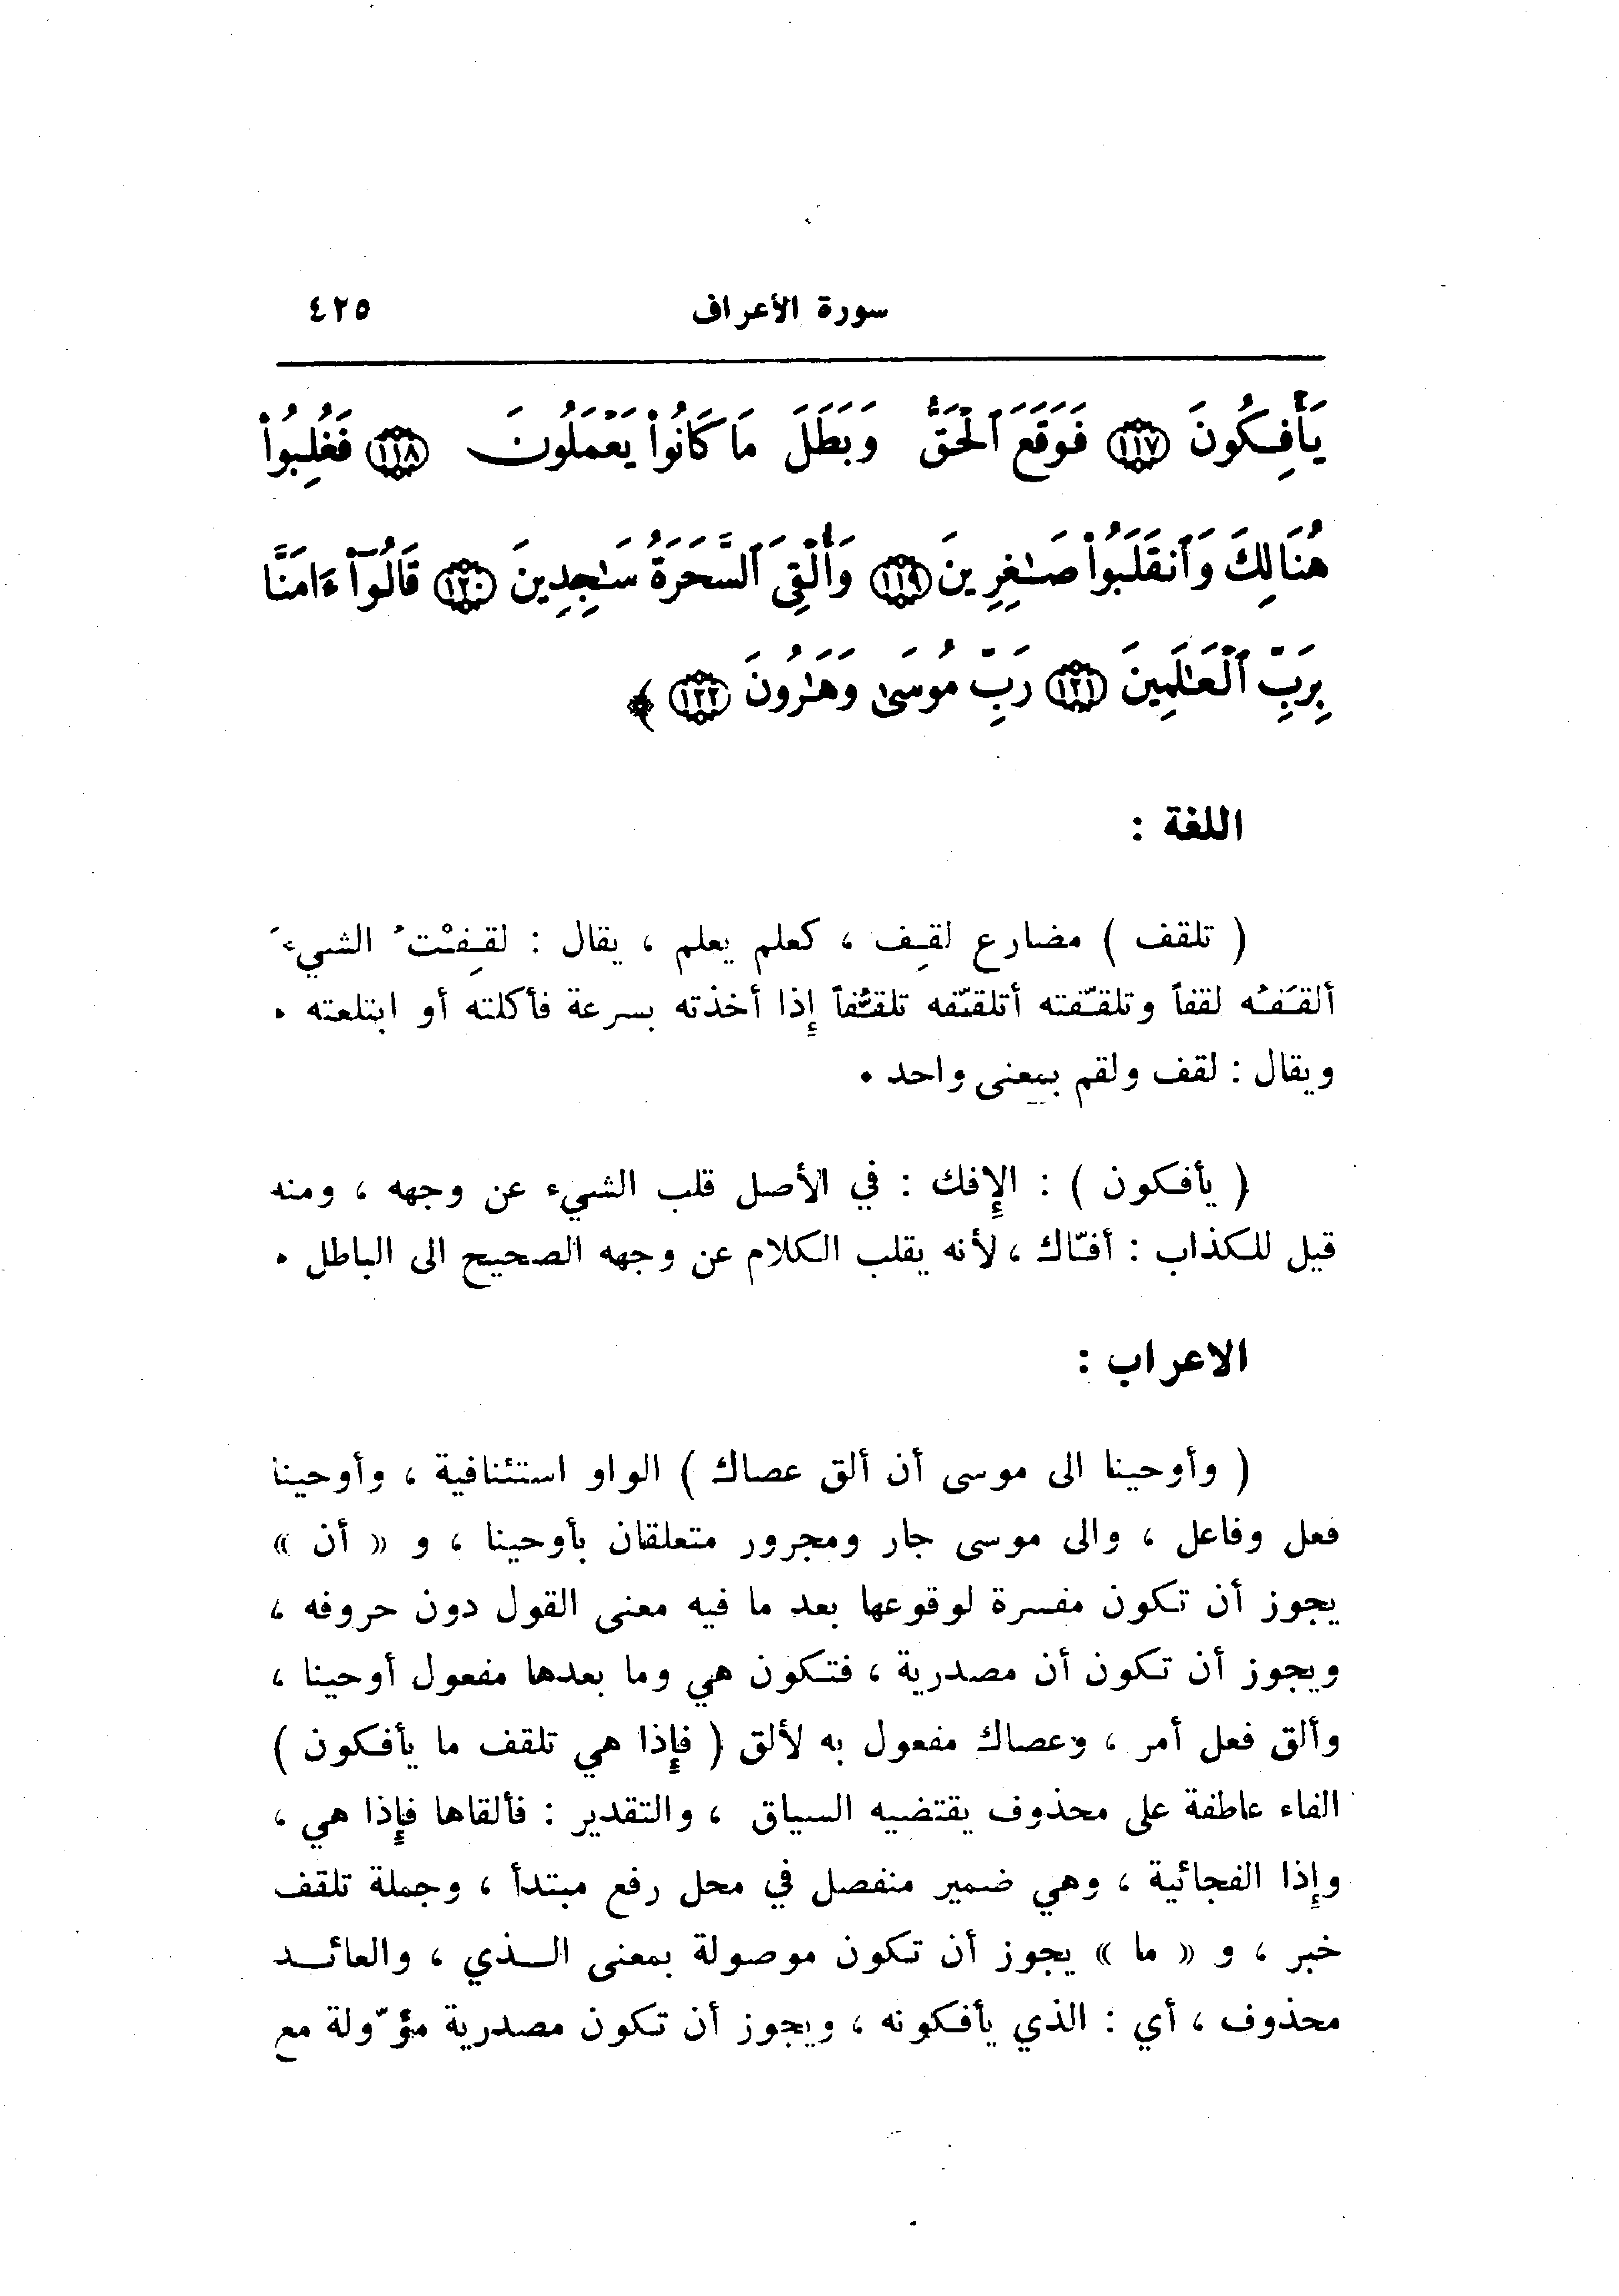 سورة الأعراف ٤٢٥
يَأْفِكُونَ ١١٧ فَوَقَعَ ٱلْحَقُّ وَبَطَلَ مَا كَانُوا۟ يَعْمَلُونَ ١١٨ فَغُلِبُوا۟
هُنَالِكَ وَٱنقَلَبُوا۟ صَـٰغِرِينَ ١١٩ وَأُلْقِىَ ٱلسَّحَرَةُ سَـٰجِدِينَ ١٢٠ قَالُوٓا۟ ءَامَنَّا
بِرَبِّ ٱلْعَـٰلَمِينَ ١٢١ رَبِّ مُوسَىٰ وَهَـٰرُونَ ١٢٢ ﴾
اللغة :
( تلقف ) مضارع لقِف ، كعلم يعلم ، يقال : لقِفْتُ الشيءَ
ألقَفُه لقفاً وتلقّفته أتلقّفه تلقُّفاً إذا أخذته بسرعة فأكلته أو ابتلعته .
ويقال : لقف ولقم بمعنى واحد .
( يأفكون ) : الإفك : في الأصل قلب الشيء عن وجهه ، ومنه
قيل للكذاب : أفّاك ، لأنه يقلب الكلام عن وجهه الصحيح الى الباطل .
الاعراب :
( وأوحينا الى موسى أن ألق عصاك ) الواو استئنافية ، وأوحينا
فعل وفاعل ، والى موسى جار ومجرور متعلقان بأوحينا ، و « أن »
يجوز أن تكون مفسرة لوقوعها بعد ما فيه معنى القول دون حروفه ،
ويجوز أن تكون أن مصدرية ، فتكون هي وما بعدها مفعول أوحينا ،
وألق فعل أمر ، وعصاك مفعول به لألق ( فإذا هي تلقف ما يأفكون )
الفاء عاطفة على محذوف يقتضيه السياق ، والتقدير : فألقاها فإذا هي ،
وإذا الفجائية ، وهي ضمير منفصل في محل رفع مبتدأ ، وجملة تلقف
خبر ، و « ما » يجوز أن تكون موصولة بمعنى الــذي ، والعائــد
محذوف ، أي : الذي يأفكونه ، ويجوز أن تكون مصدرية مؤوّلة مع